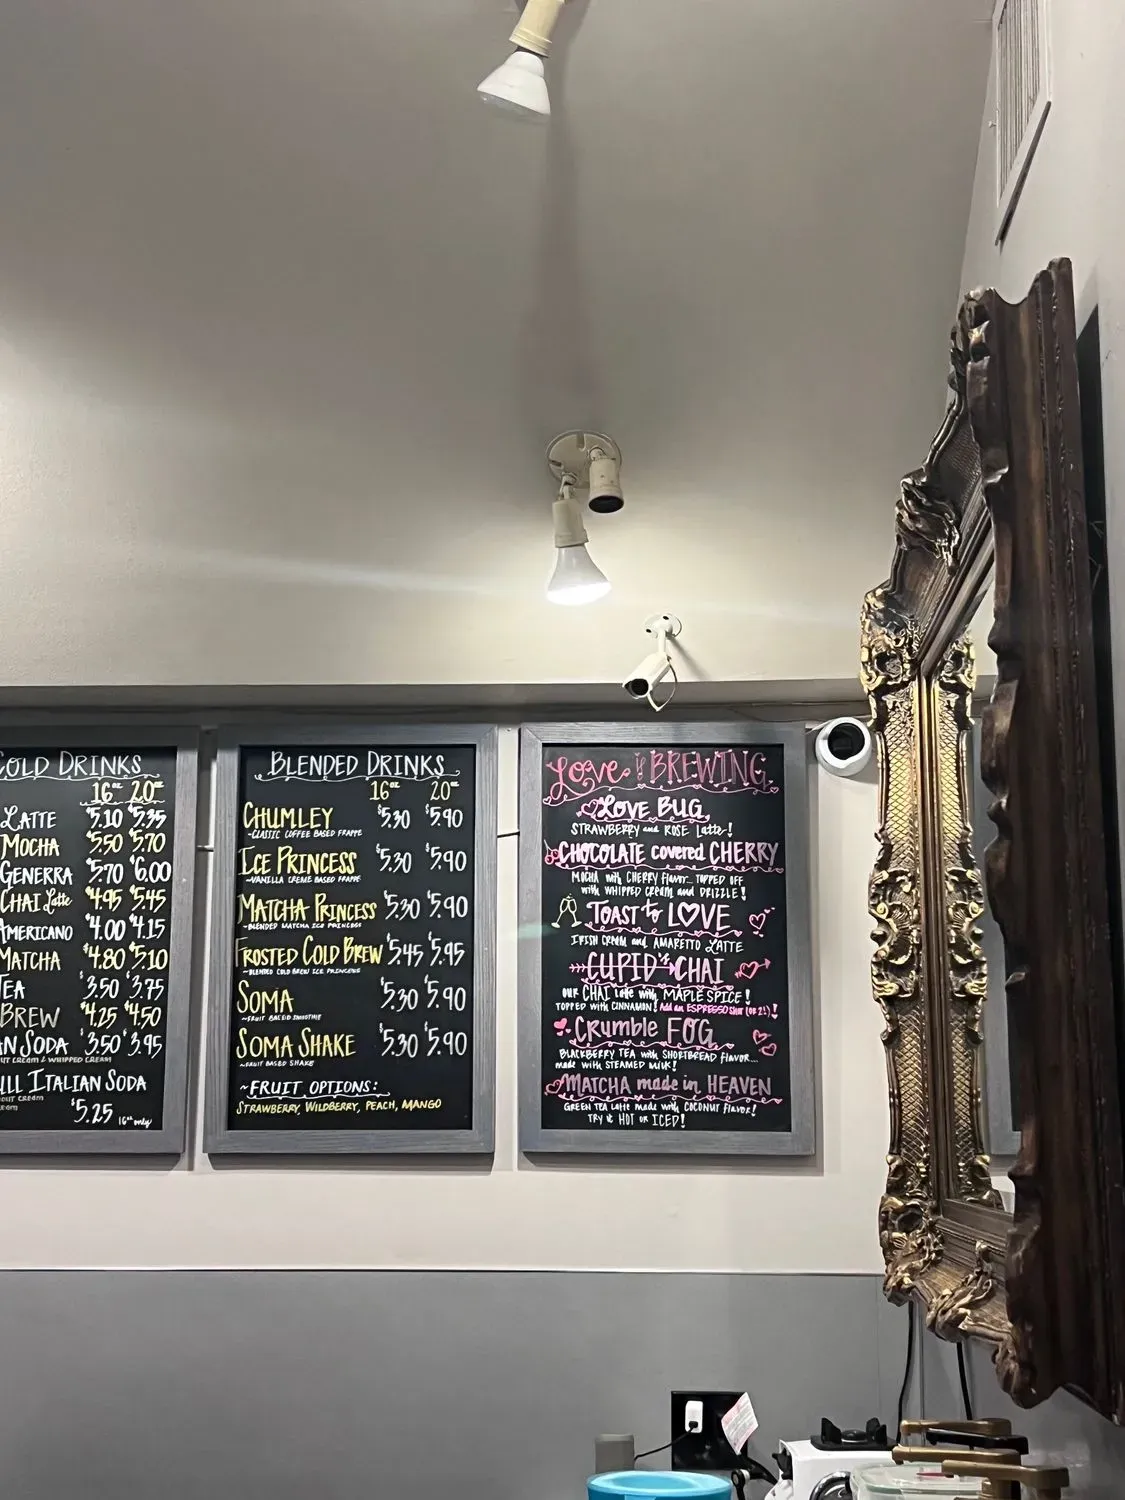 COLD DRINKS
16oz 20oz
LATTE $5.10 $5.35
MOCHA $5.50 $5.70
GENERRA $5.70 $6.00
CHAI Latte $4.95 $5.45
AMERICANO $4.00 $4.15
MATCHA $4.80 $5.10
TEA $3.50 $3.75
BREW $4.25 $4.50
AN SODA $3.50 $3.95
UT CREAM & WHIPPED CREAM
ULL ITALIAN SODA
OUT CREAM
$5.25 16oz only
BLENDED DRINKS
16oz 20oz
CHUMLEY $5.30 $5.90
~CLASSIC COFFEE BASED FRAPPE
ICE PRINCESS $5.30 $5.90
~VANILLA CREME BASED FRAPPE
MATCHA PRINCESS $5.30 $5.90
~BLENDED MATCHA ICE PRINCESS
FROSTED COLD BREW $5.45 $5.95
~BLENDED COLD BREW ICE PRINCESS
SOMA $5.30 $5.90
~FRUIT BASED SMOOTHIE
SOMA SHAKE $5.30 $5.90
~FRUIT BASED SHAKE
~FRUIT OPTIONS:
STRAWBERRY, WILDBERRY, PEACH, MANGO
Love is BREWING
LOVE BUG
STRAWBERRY and ROSE Latte!
CHOCOLATE covered CHERRY
MOCHA with CHERRY flavor... TOPPED OFF
with WHIPPED CREAM and DRIZZLE!
TOAST to LOVE
IRISH CREAM and AMARETTO LATTE
CUPID'S CHAI
OUR CHAI latte with MAPLE SPICE!
TOPPED with CINNAMON! Add an ESPRESSO SHOT (OR 2)!
Crumble FOG
BLACKBERRY TEA with SHORTBREAD flavor...
made with STEAMED MILK!
MATCHA made in HEAVEN
GREEN TEA Latte made with COCONUT flavor!
TRY it HOT or ICED!